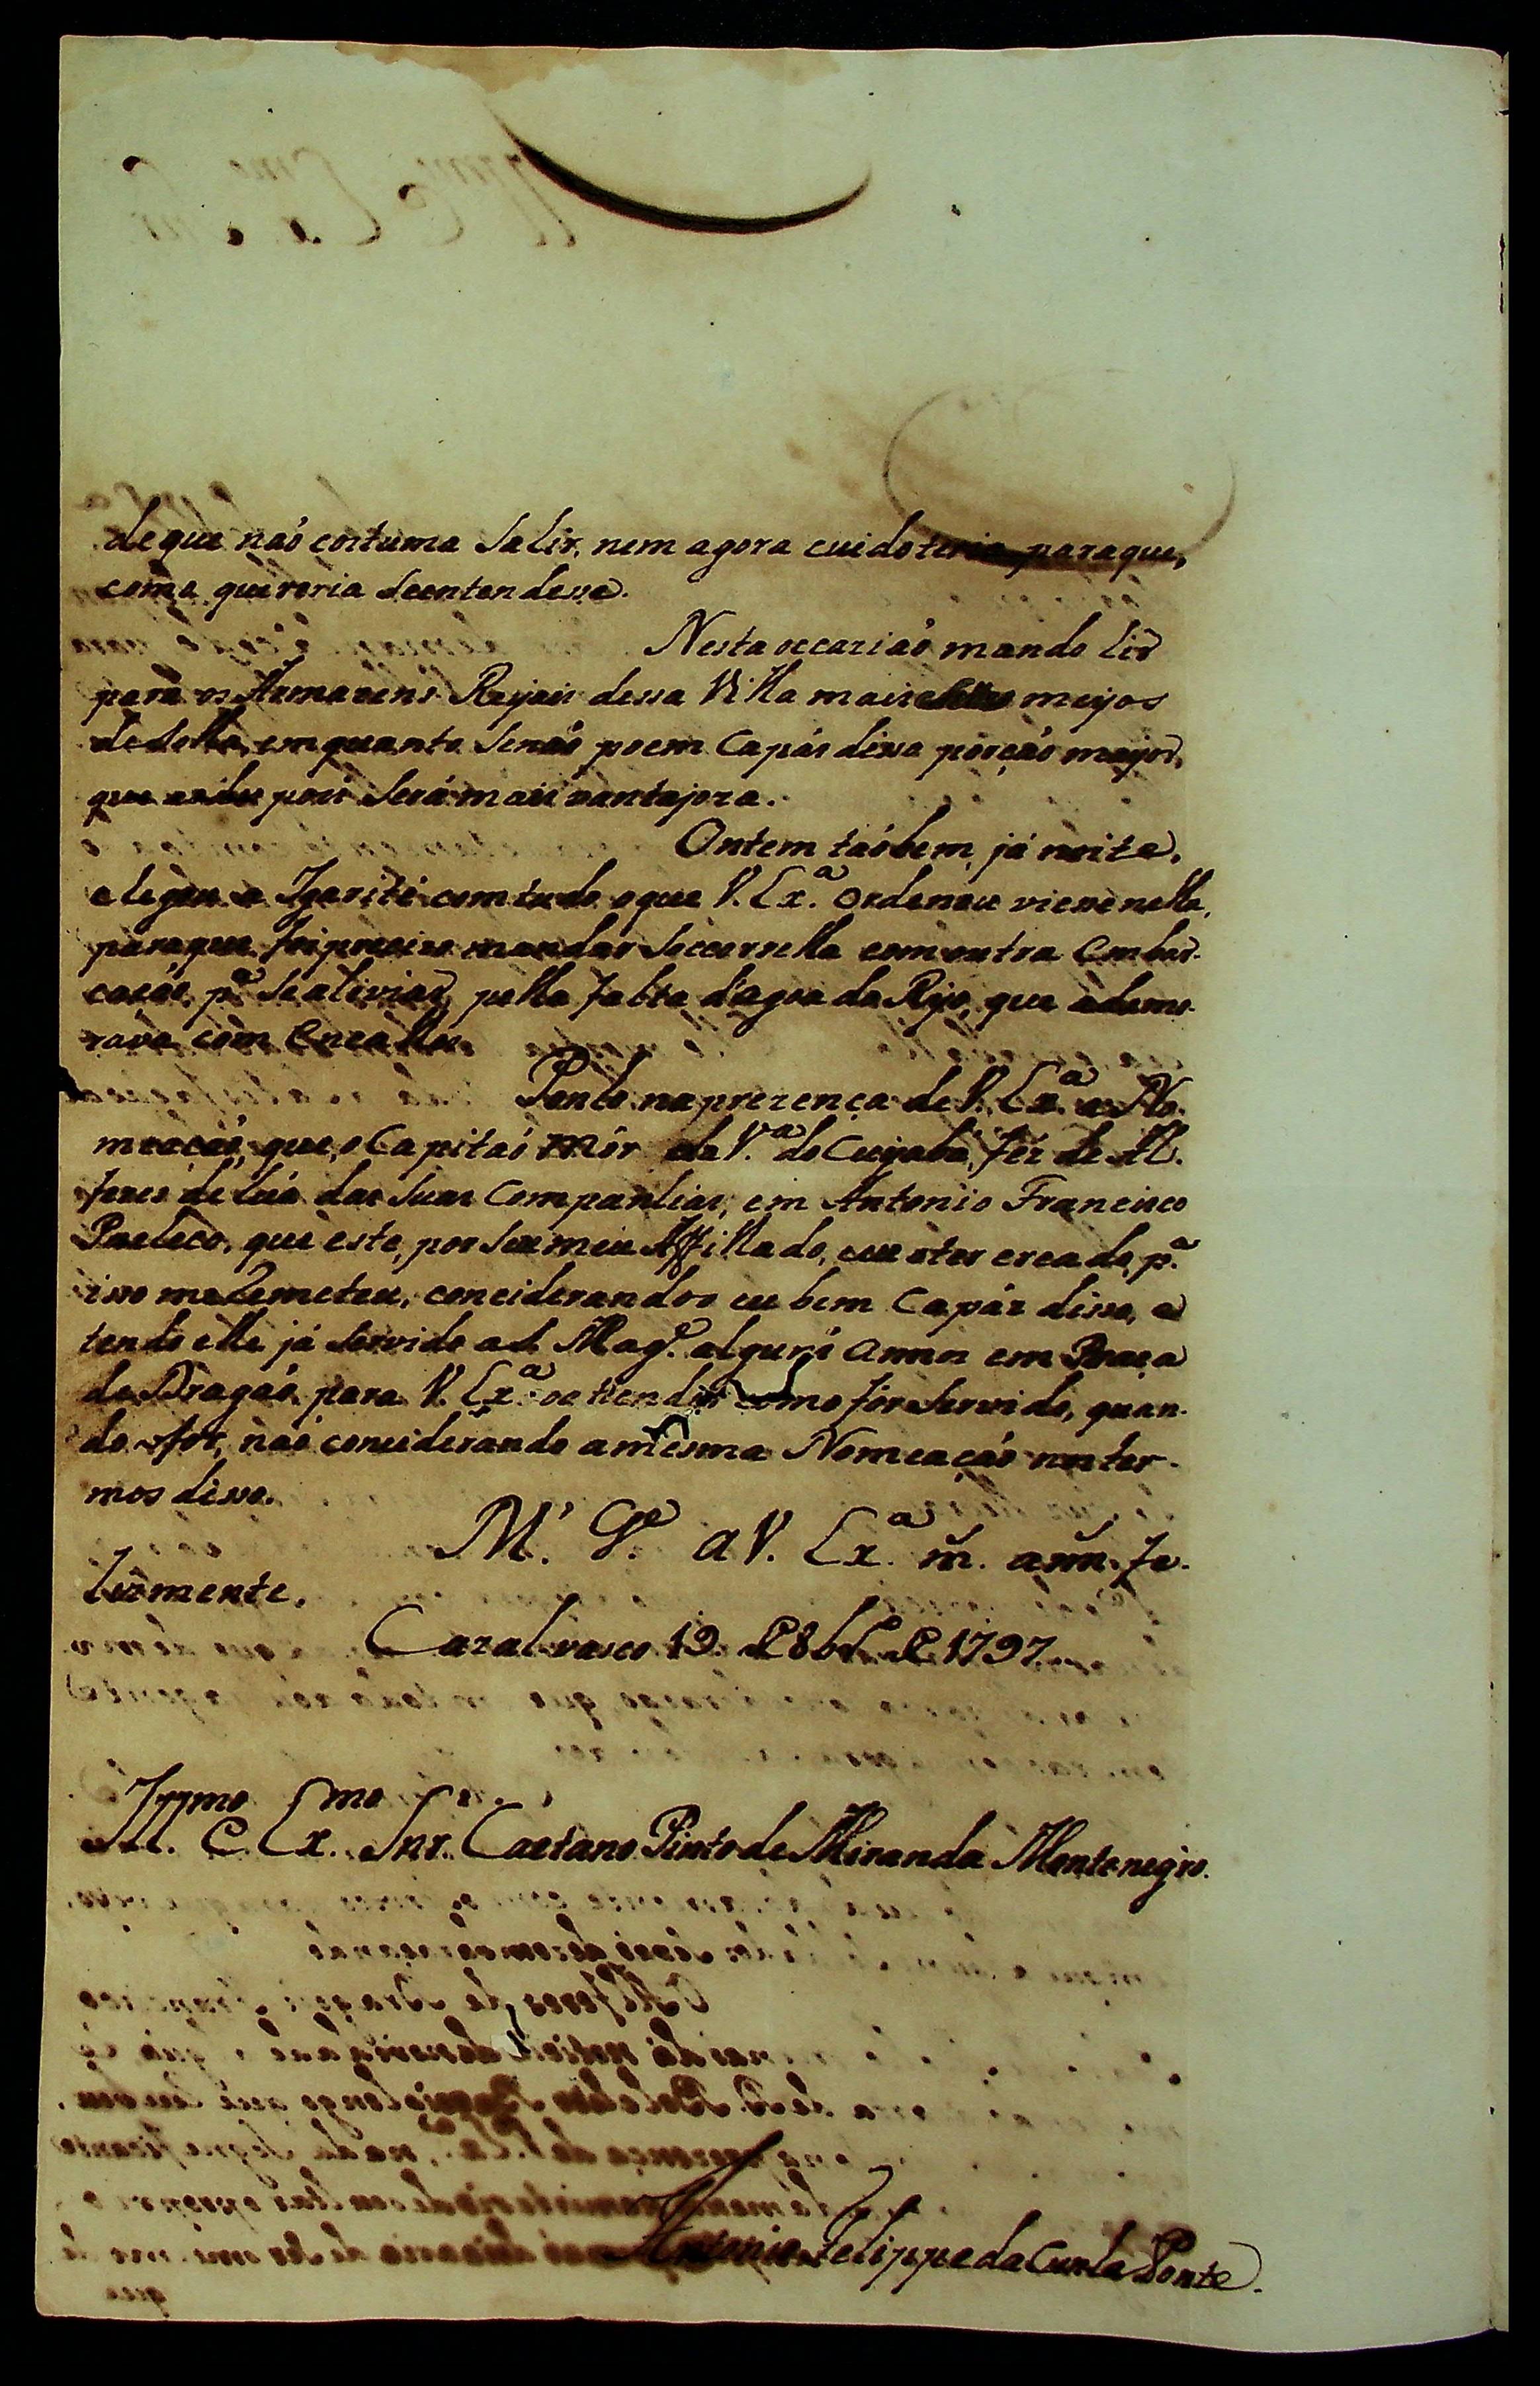 de que naõ costuma sahir, nem agora cuido teria para que,
como quereria se entendesse.
Nesta occaziaõ mando hir
para os Armazens Reyais dessa Villa mais meyos
de solla, emquanto senaõ poem capás dissa porçaõ mayor,
que pois será mais vantajoza.
Ontem taõbem, já noite,
chegou a Igarité com tudo o que V. Ex.ª ordenou viesse nella,
para que foi precizo mandar soccorrella com outra embar-
caçaõ, p.ª se aliviar, pella falta d'agoa do Ryo, que a demo-
rava com encalhes.
Ponho na prezença de V. Ex.ª a No-
meaçaõ, que o Capitaõ Mór da V.ª do Cuyabá fez de Al-
feres de húa das suas Companhias, em Antonio Francisco
Pacheco, que este, por ser meu Affilhado, e o ter creado, p.ª
isso me remeteu, conciderandoo eu bem capáz disso, e
tendo elle já servido a S. Mag.e alguns annos em Praça
de Dragaõ, para V. Ex.ª o attender como for servido, quan-
do o for, naõ conciderando a mesma Nomeaçaõ nos ter-
mos disso.
N. S. G.e a V. Ex.ª m. ann. fe-
lizmente.
Cazalvasco 19 de 8br.o de 1797
Ill.mo e Ex.mo Snr. Caetano Pinto de Miranda Montenegro.
Antonio Felippe da Cunha Ponte.